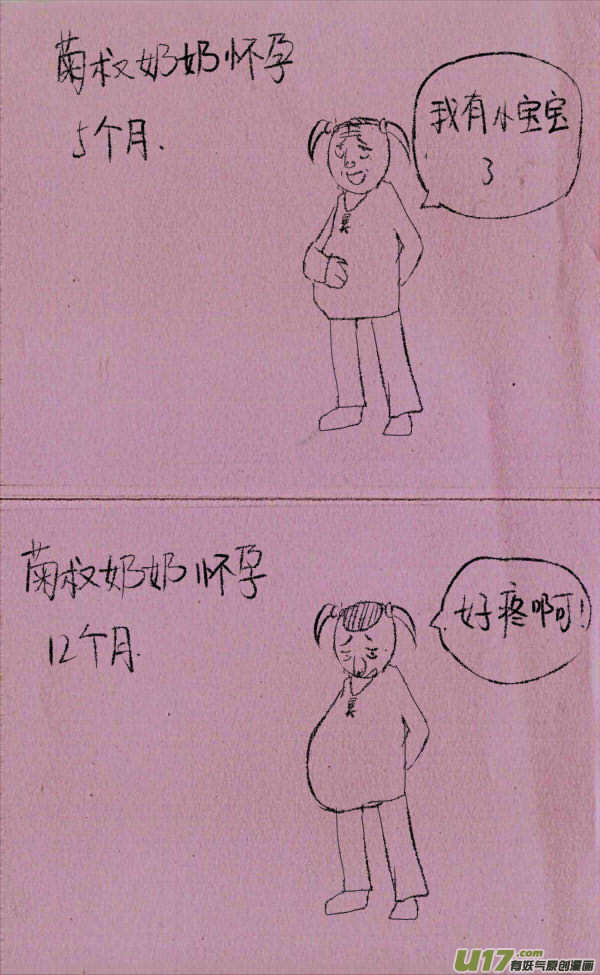 菊叔奶奶怀孕
5个月.
我有小宝宝
了
菊叔奶奶怀孕
12个月.
好疼啊!
U17.com
有妖气原创漫画